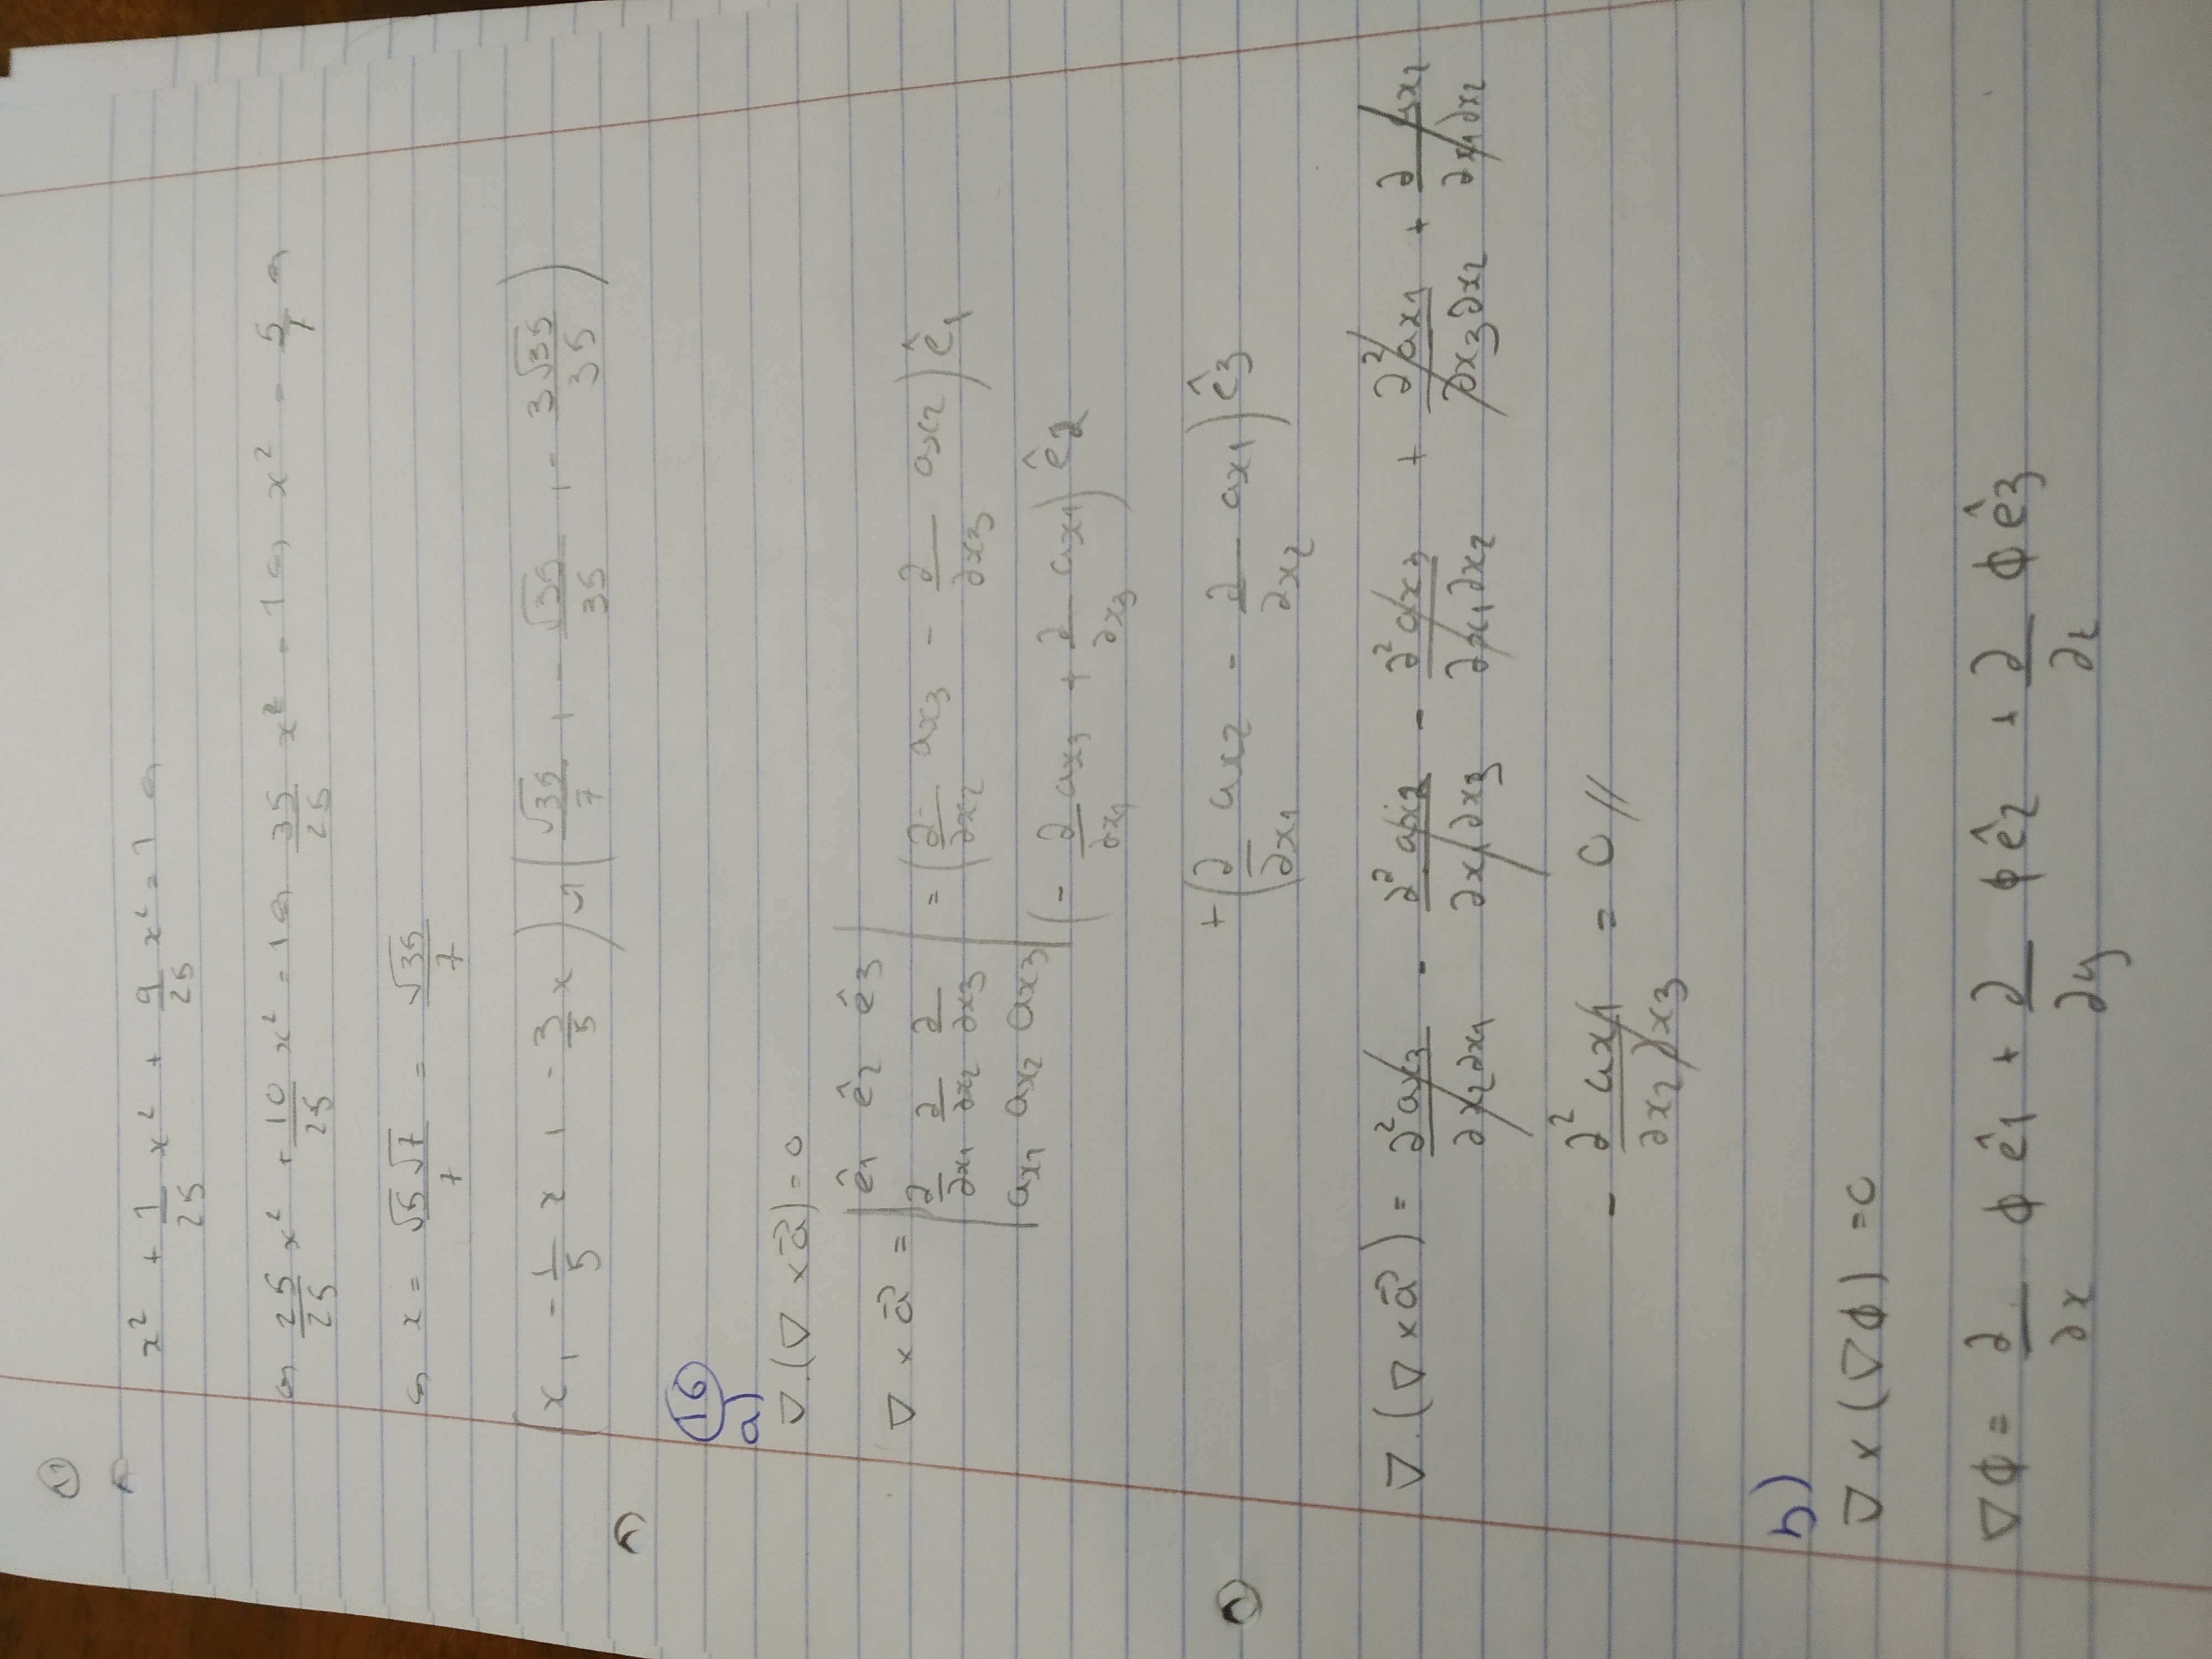 x² + 1/25 x² + 9/25 x² = 1 ↪
↪ 25/25 x² + 10/25 x² = 1 ↪ 35/25 x² = 1 ↪ x² = 5/7 ↪
↪ x = √5 √7 / 7 = √35 / 7
(x, -1/5 x, -3/5 x) ↪ (√35/7, -√35/35, -3√35/35)
16
a)
∇.(∇ × a⃗) = 0
∇ × a⃗ = | ê1 ê2 ê3 |
| ∂/∂x1 ∂/∂x2 ∂/∂x3 | = (∂/∂x2 ax3 - ∂/∂x3 ax2) ê1
| ax1 ax2 ax3 | (- ∂/∂x1 ax3 + ∂/∂x3 ax1) ê2
+ (∂/∂x1 ax2 - ∂/∂x2 ax1) ê3
∇.(∇ × a⃗) = ∂²ax3/∂x2∂x1 - ∂²ax2/∂x1∂x3 - ∂²ax3/∂x1∂x2 + ∂²ax1/∂x3∂x2 + ∂ax2/∂x1∂x2
- ∂²ax1/∂x2∂x3 = 0 //
b)
∇ × (∇φ) = 0
∇φ = ∂/∂x φ ê1 + ∂/∂y φ ê2 + ∂/∂z φ ê3